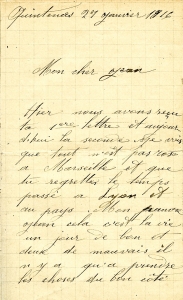 Quintenas 27 janvier 1916
Mon cher Jean
Hier nous avons reçu
ta 1ère lettre et aujour
d'hui la seconde. Je vois
que tout n'est pas rose
à Marseille et que
tu regrettes le temps
passé à Lyon et
au pays. Mon pauvre
Jean cela c'est la vie
un jour de bon et
deux de mauvais il
n'y a qu'à prendre
les choses du bon côté